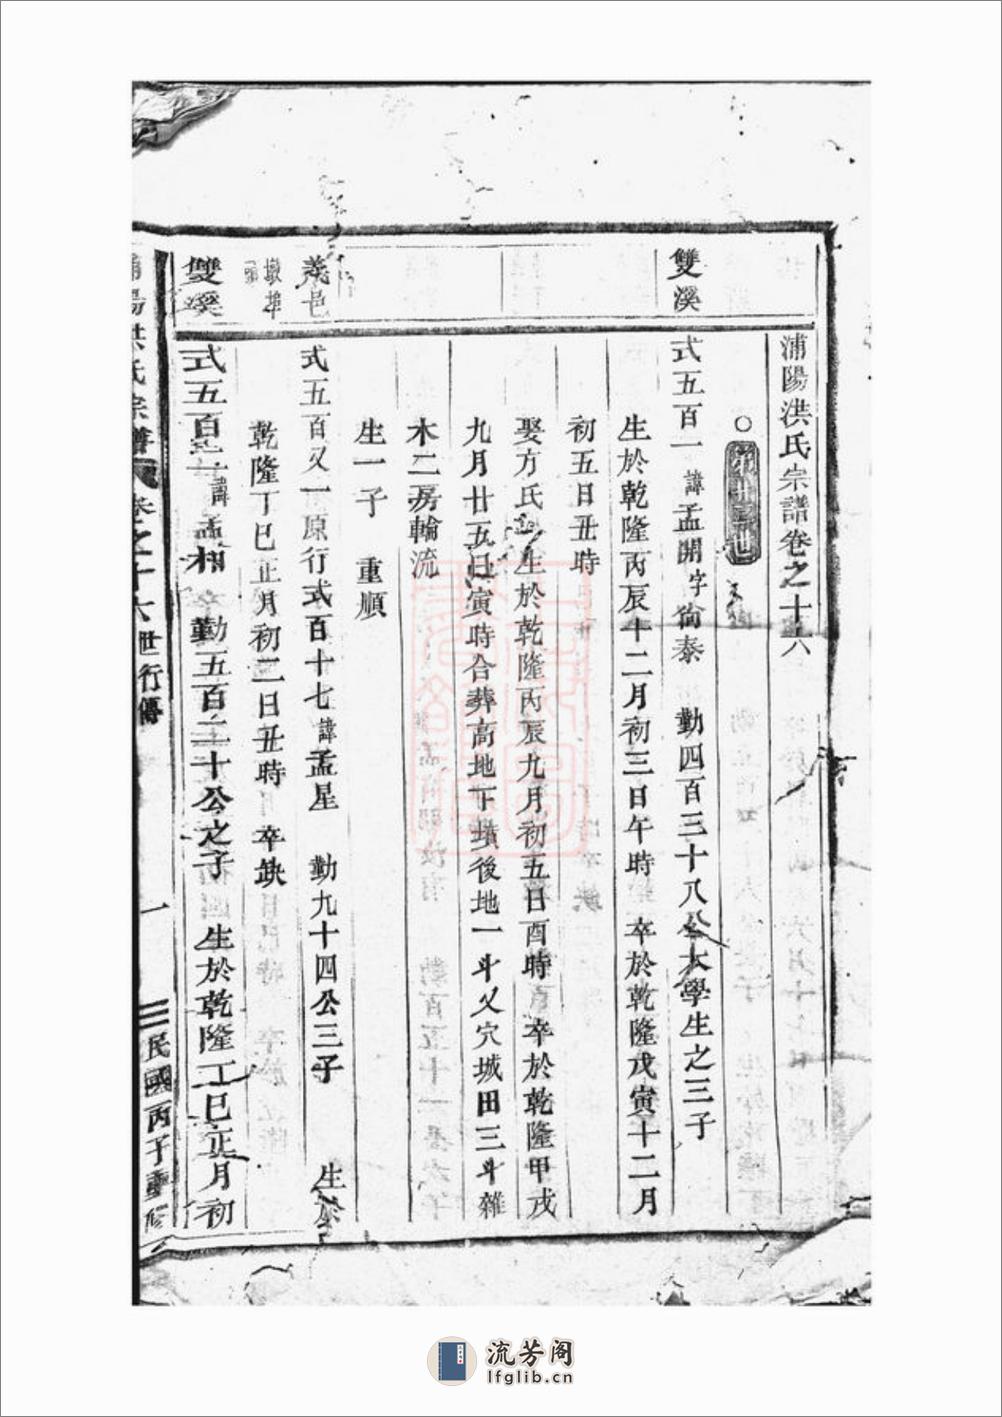 浦陽洪氏宗譜卷之十六
雙溪
式五百一諱孟開字尙泰 勤四百三十八公大學生之三子
生於乾隆丙辰十二月初三日午時 卒於乾隆戊寅十二月
初五日丑時
娶方氏 生於乾隆丙辰九月初五日酉時 卒於乾隆甲戌
九月廿五日寅時合葬高地下墳後地一斗又穴城田三斗雜
木二房輪流
生一子 重順
義邑
式五百又一原行式百十七諱孟星 勤九十四公三子 生於
乾隆丁巳正月初二日丑時 卒缺
雙溪
式五百二諱孟相 勤五百二十公之子 生於乾隆丁巳正月初
浦陽洪氏宗譜 卷之十六 世行傳 一 民國丙子重修
流芳阁
lfglib.cn